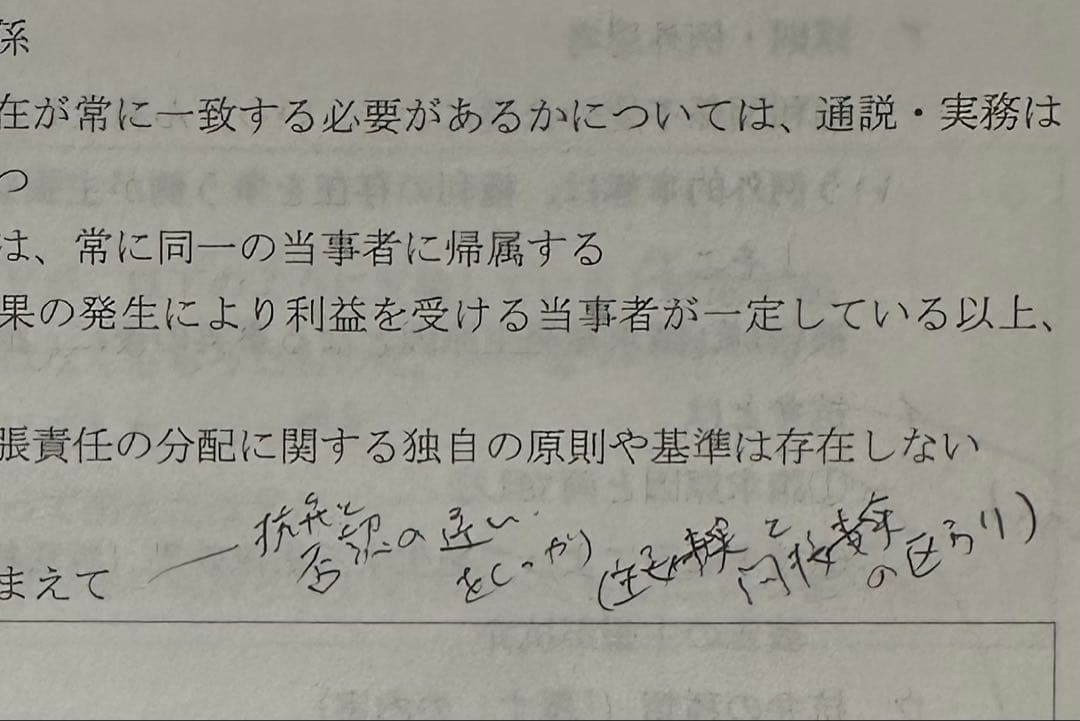 係
在が常に一致する必要があるかについては、通説・実務は
つ
は、常に同一の当事者に帰属する
果の発生により利益を受ける当事者が一定している以上、
張責任の分配に関する独自の原則や基準は存在しない
抗弁と
否認の違い
をしっかり
(主要事実と間接事実
の区別)
まえて